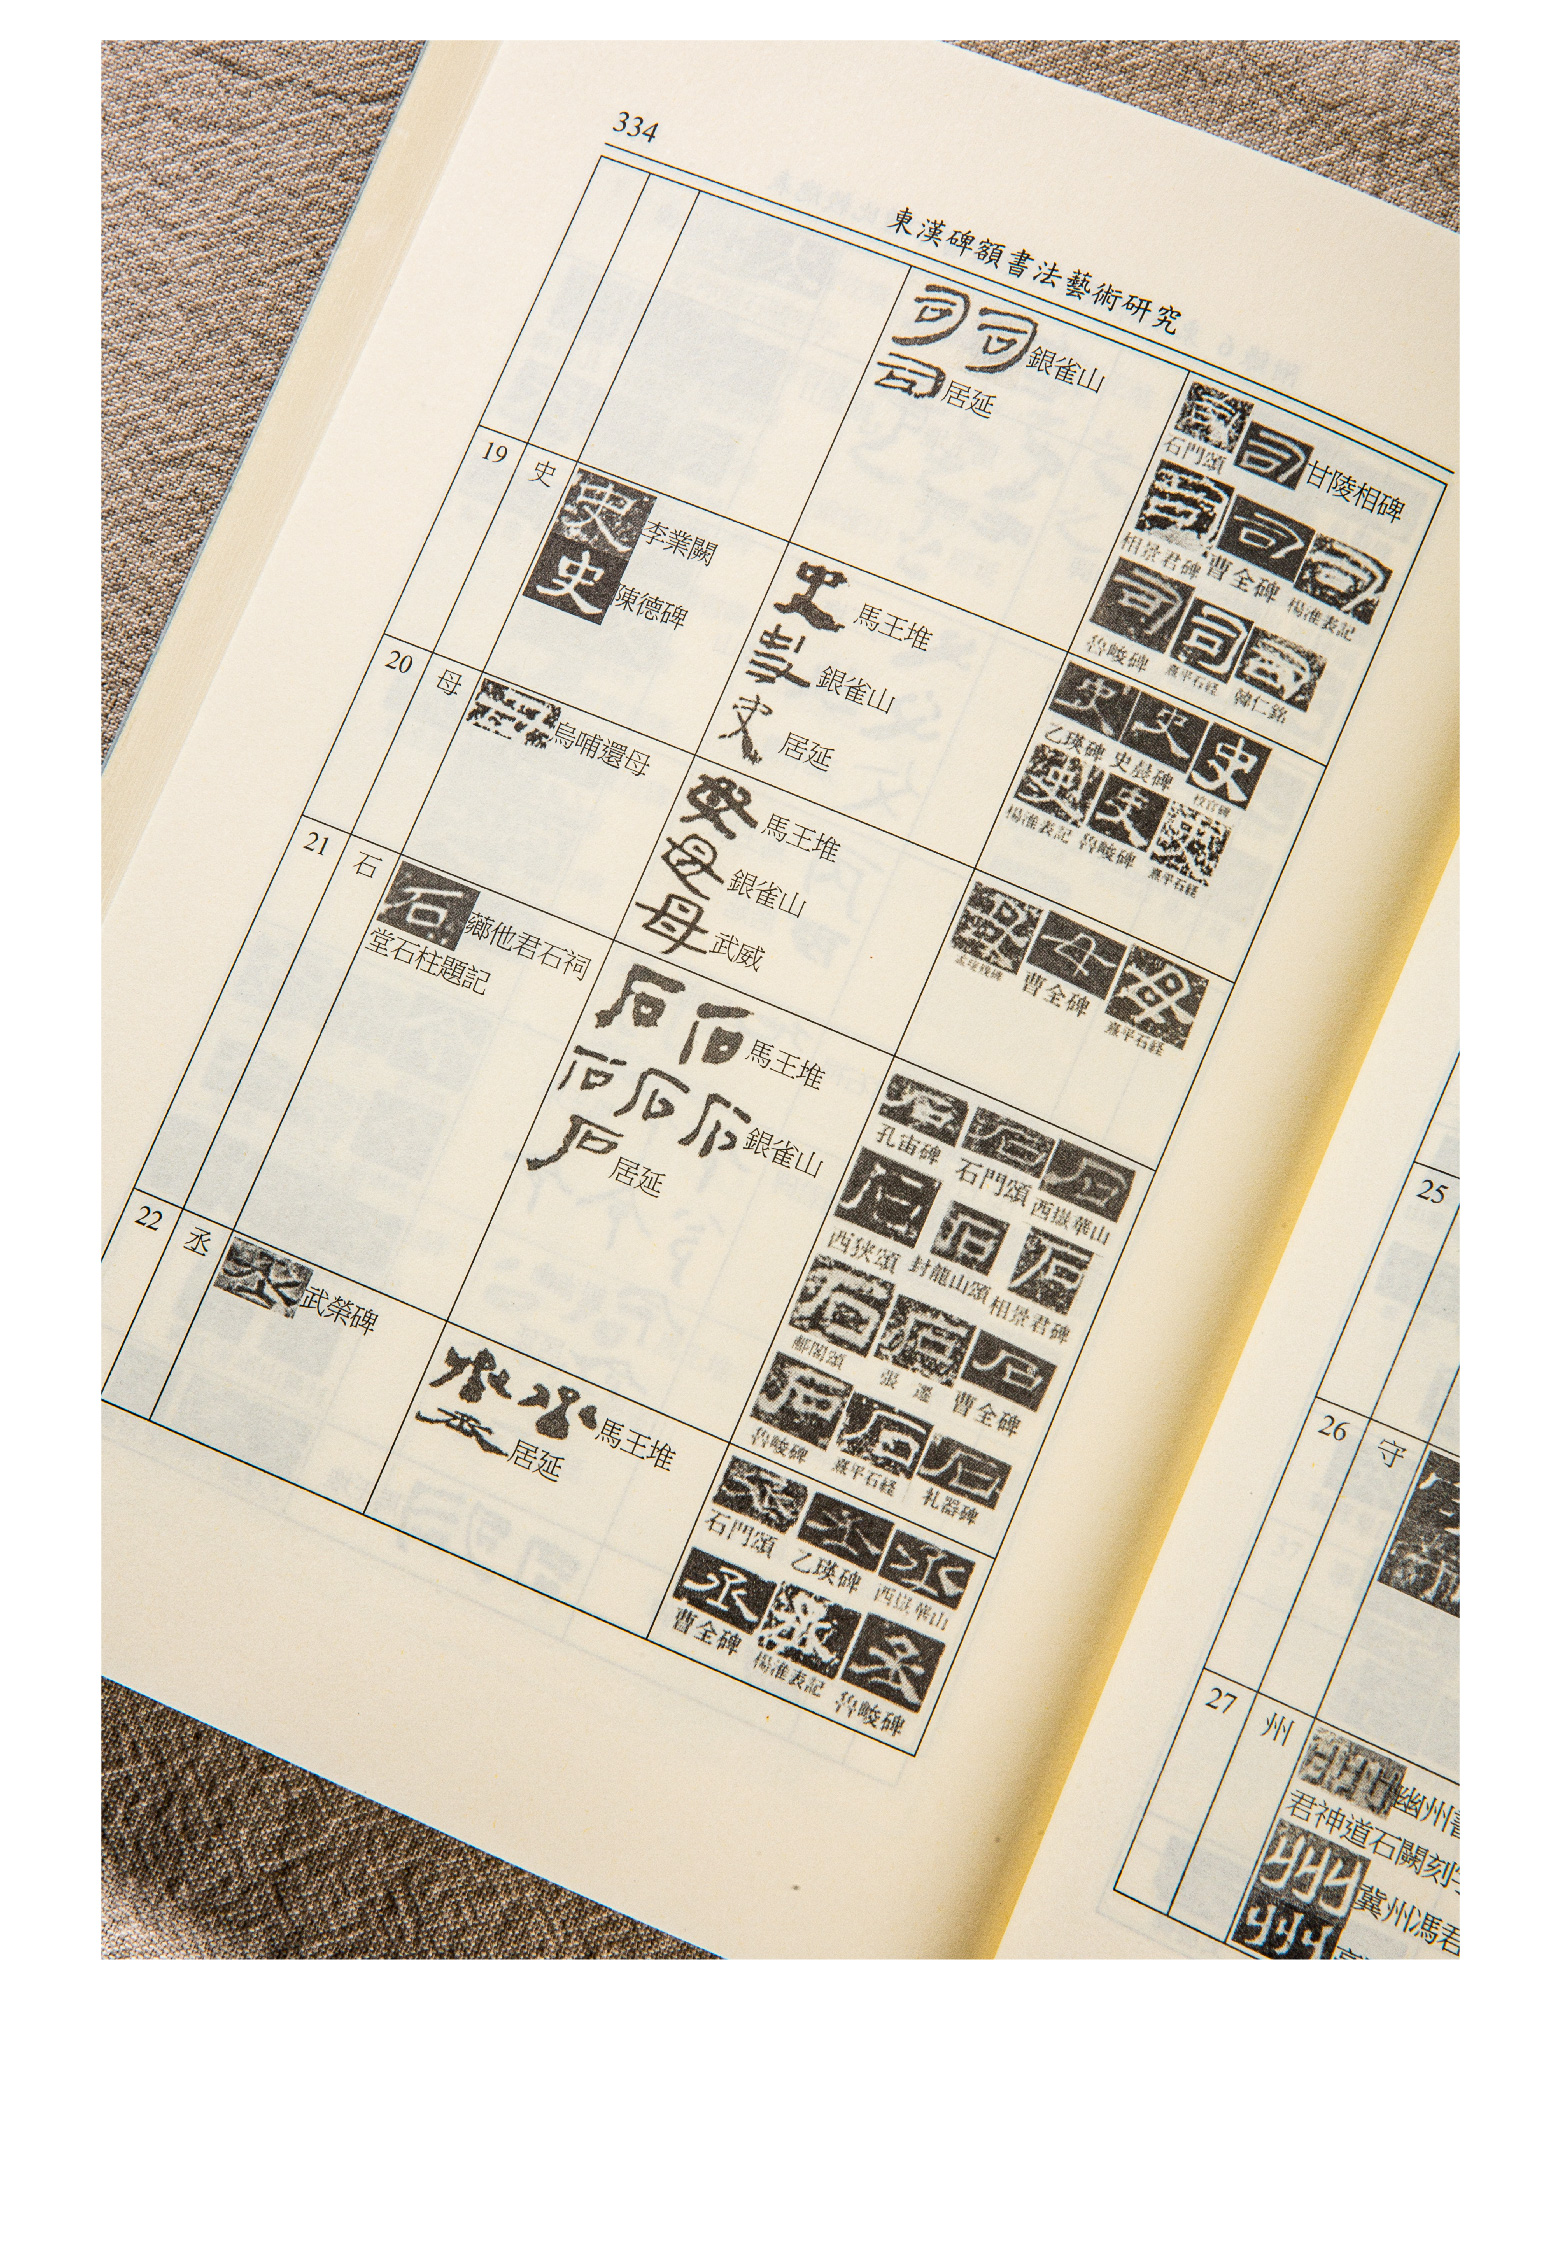 334
東漢碑額書法藝術研究
司 司 銀雀山
司 居延
石門頌
司 甘陵相碑
相景君碑 曹全碑 楊淮表記
魯峻碑 熹平石経 韓仁銘
19 史
史 李業闕
史 陳德碑
史 馬王堆
銀雀山
史 居延
乙瑛碑 史晨碑 校官碑
楊淮表記 魯峻碑 熹平石経
20 母
烏哺還母
母 馬王堆
母 銀雀山
母 武威
曹全碑 熹平石経
21 石
石 薌他君石祠
堂石柱題記
石 石 馬王堆
石 石 石 銀雀山
石 居延
孔宙碑 石門頌 西嶽華山
西狭頌 封龍山頌 相景君碑
郙閣頌 張遷 曹全碑
魯峻碑 熹平石経 礼器碑
22 丞
丞 武榮碑
丞 丞 馬王堆
丞 居延
石門頌 乙瑛碑 西嶽華山
曹全碑 楊淮表記 魯峻碑
25
26 守
27 州
州 幽州書
君神道石闕刻字
州 冀州馮君
州